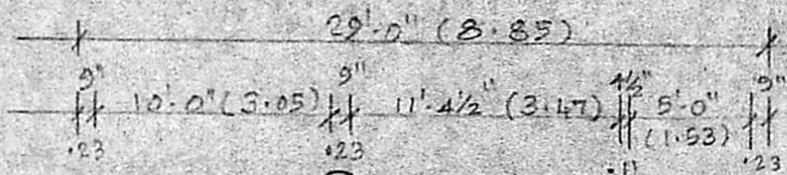 29'-0" (8.85)
9" 10'-0" (3.05) 9" 11'-4½" (3.47) 4½" 5'-0" 9"
(1.53)
.23 .23 .11 .23